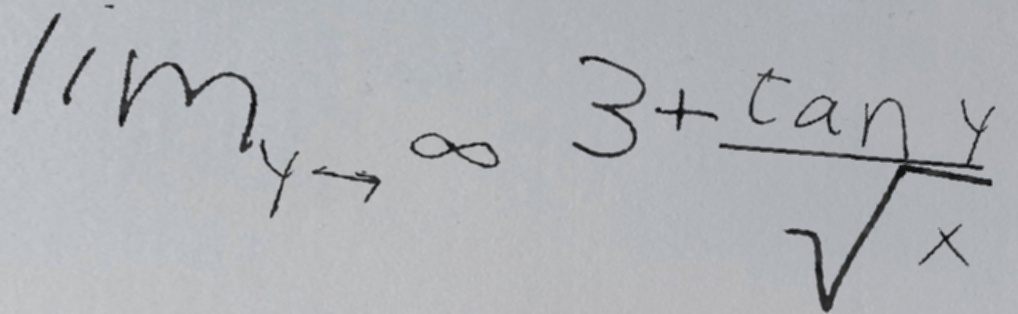 lim y→∞ 3+ tan y
√x